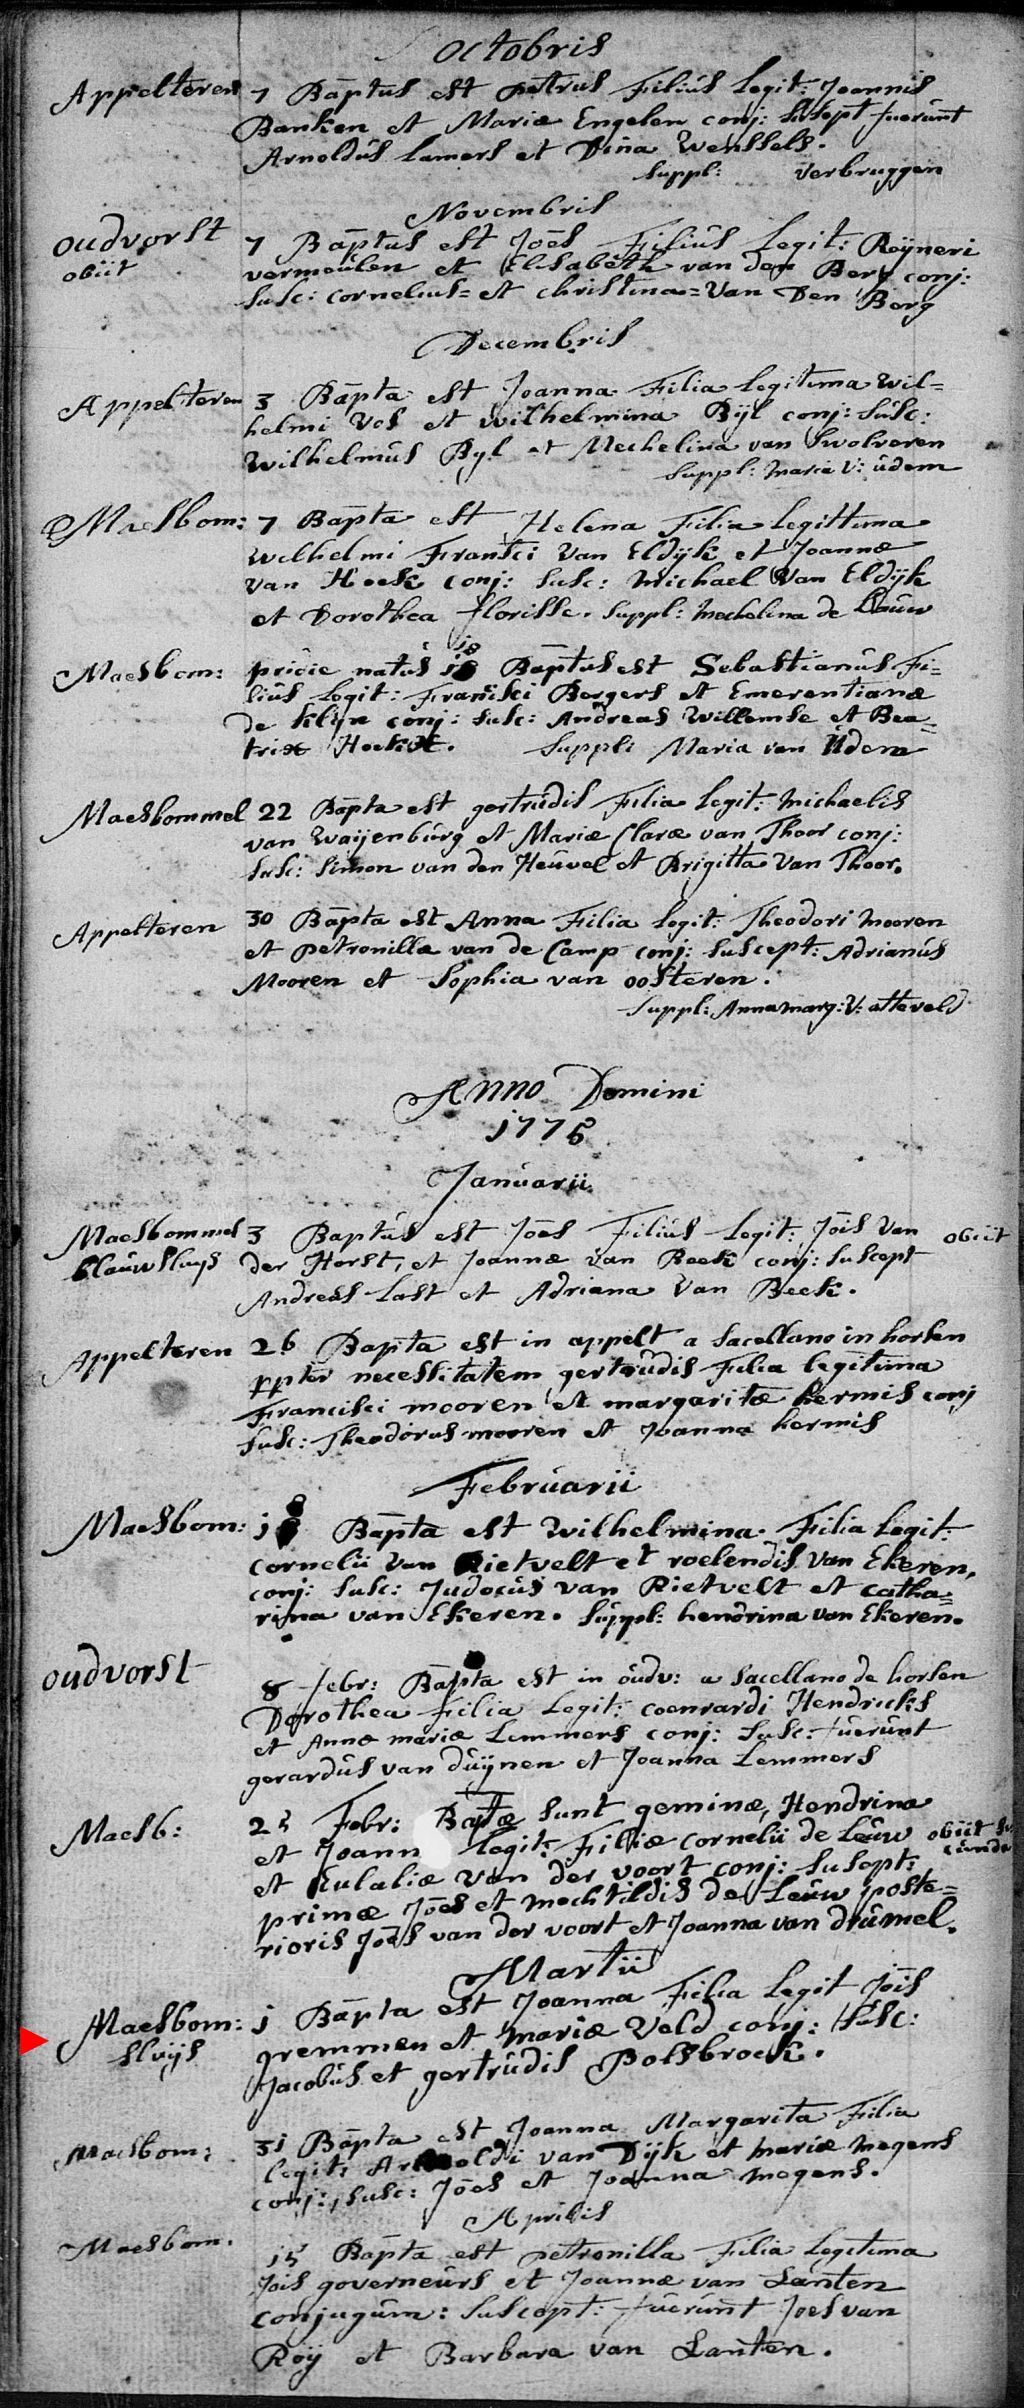 Octobris
Appelteren 7 Bāptus est petrus Filius Legit: Joannis
Banken et Mariæ Engelen conj: Susept fuerunt
Arnoldus Lamers et Dina Wenssels.
Suppl: verbruggen
Novembris
oudvorst 7 Bāptus est Jōēs Filius Legit: Reijneri
obiit vermeulen et Elisabeth van den Berg conj:
Susc: cornelius= et christina= Van Den Berg
Decembris
Appelteren 3 Bāpta est Joanna Filia Legitima Wil=
helmi Vos et wilhelmina Bijl conj: Susc:
Wilhelmus Byl et Mechelina van Swolveren
Suppl: Maria V: udem
Maesbom: 7 Bāpta est Helena Filia Legittima
Wilhelmi Francisci Van Eldijk et Joannæ
van Hoek conj: Susc: Michael Van Eldijk
et Dorothea florisse. Suppl: Mechelina de Leeuw
18
Maesbom: pridie natus Bāptus est Sebastianus Fi=
lius Legit: Francisci Bergers et Emerentianæ
de Klijn conj: Susc: Andreas Willemse et Bea=
trix Hoekx. Suppl: Maria van Udem
Maesbommel 22 Bāpta est gertrudis Filia Legit: Michaelis
van Waijenburg et Mariæ Claræ van Thoor conj:
Susc: Simon van den Heuvel et Brigitta Van Thoor.
Appelteren 30 Bāpta est Anna Filia Legit: Theodori Mooren
et petronillæ van de Camp conj: Suscept: Adrianus
Mooren et Sophia van oosteren.
Suppl: Anna marg: V: atteveld
Anno Domini
1775
Januarii
Maesbommel 3 Baptus est Jōēs Filius Legit: Jōīs Van obiit
blauwsluijs der Horst, et Joannæ van Beek conj: Suscept
Andreas Last et Adriana Van Beek.
Appelteren 26 Bapta est in appelt a Sacellano in horsen
ppter necessitatem gertrudis Filia legitima
Francisci mooren et margaritæ hermis conj
Susc: Theodorus mooren et Joanna hermis
Februarii
Maesbom: 18 Bāpta est Wilhelmina Filia Legit:
cornelii Van Rietvelt et roelendis Van Ekeren,
conj: Susc: Judocus van Rietvelt et catha=
rina van Ekeren. Suppl: hendrina van Ekeren.
oudvorst 8 febr: Bāpta est in oudv: a Sacellano de horsen
Dorothea Filia Legit: coenrardi Hendricks
et Annæ mariæ Lemmers conj: Susc: fuerunt
gerardus van duijnen et Joanna Lemmers
Maesb: 25 Febr: Baptæ Sunt geminæ, Hendrina
et Joann Legit: Filiæ cornelii de Leuw obiit Se
cunda
et Eulaliæ Van der voort conj: Susept:
primæ Jōēs et Mechtildis de Leuw poste=
rioris Jōēs van der voort et Joanna van drumel.
Martii
Maesbom: 1 Bāpta est Joanna Filia Legit Jōīs
sluijs gremmen et mariæ Veld conj: Susc:
Jacobus et gertrudis Polsbroek.
Maesbom: 31 Bāpta est Joanna Margarita Filia
legit: Arnoldi van Dijk et mariæ megens
conj: Susc: Jōēs et Joanna megens.
Aprilis
Maesbom. 15 Bāpta est petronilla Filia Legitima
Jois governeurs et Joannæ van Santen
conjugum: Suscept: fuerunt Joes van
Roij et Barbara van Santen.